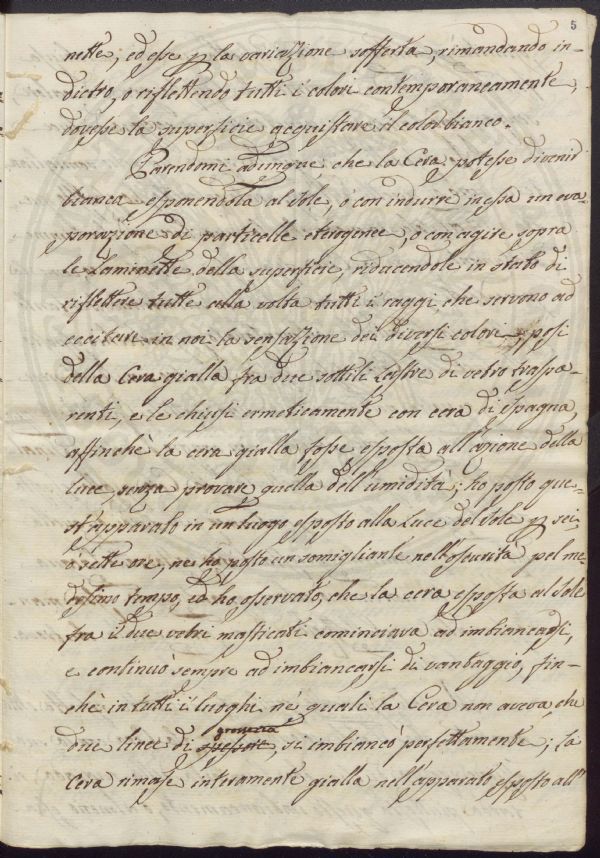 5
nette, ed esse p la variazione sofferta, rimandando in-
dietro, o riflettendo tutti i colori contemporaneamente,
dovesse la superficie acquistare il color bianco.
Parendomi adunque che la Cera potesse divenir
bianca esponendola al sole, o con indurre in essa un eva-
porazione di particelle eterogenee, o con agire sopra
le Laminette della superficie, riducendole in stato di
riflettere tutte alla volta tutti i raggi, che servono ad
eccitare in noi la sensazione dei diversi colori, posi
della Cera gialla fra due sottili Lastre di vetro traspa-
renti, e le chiusi ermeticamente con cera di Spagna,
affinchè la cera gialla fosse esposta all'azione della
luce, senza provare quella dell'umidità; ho posto que-
st'apparato in un luogo esposto alla Luce del Sole p sei,
o sette ore, ne ho posto un somigliante nell'oscurità pel me-
desimo tempo, ed ho osservato, che la cera esposta al Sole
fra i due vetri masticati cominciava ad imbiancarsi,
e continuò sempre ad imbiancarsi di vantaggio, fin-
chè in tutti i luoghi ne' quali la Cera non aveva, che
due linee di spessore, grossezza si imbiancò perfettamente; la
Cera rimase interamente gialla nell'apparato esposto all'